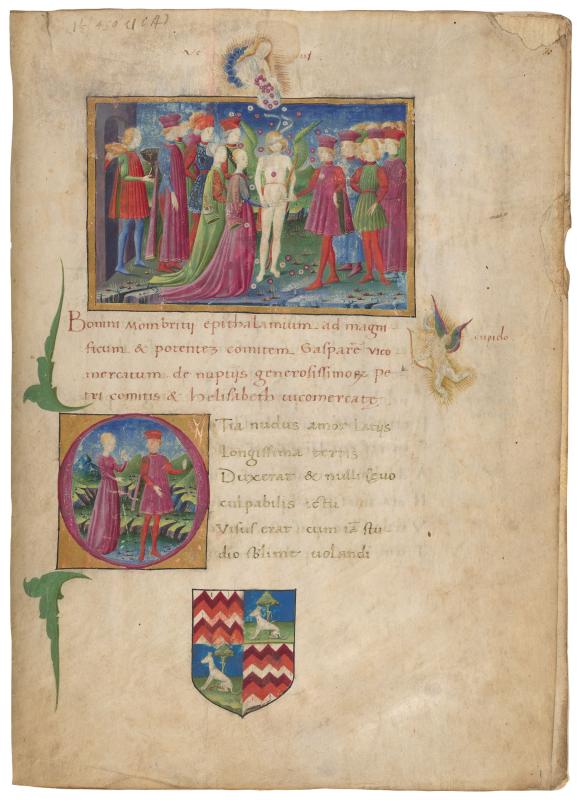 Bonini Mombritii epithalamium ad magni
ficum & potentez comitem Gasparē vico
mercatum de nuptijs generosissimoꝝ pe
tri comitis & helisabeth vicomercatę.
cupido
Tia nudus amor latijs
longissima terris
Duxerat & nulli
culpabilis ictu
Visus erat cum iā stu
dio sublime uolandi